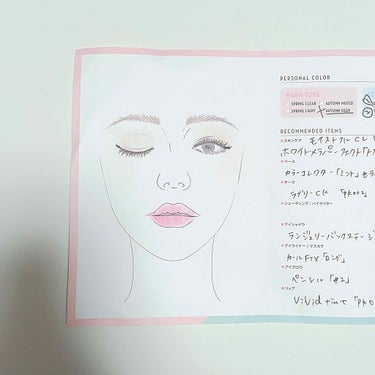 PERSONAL COLOR
WARM TONE
SPRING CLEAR
AUTUMN MUTED
SPRING LIGHT
AUTUMN DEEP
RECOMMENDED ITEMS
*スキンケア モイストフル CL
ホワイトメラノ
*ベース
カラーコレクター「ミント」
*チーク
ラブリー CK 「PK002」
*シェーディング/ハイライター
*アイシャドウ
ランジェリーバックステージ
*アイライナー/マスカラ
カールFix「ロング」
*アイブロウ
ペンシル「#2」
*リップ
Vivid tint「PK0